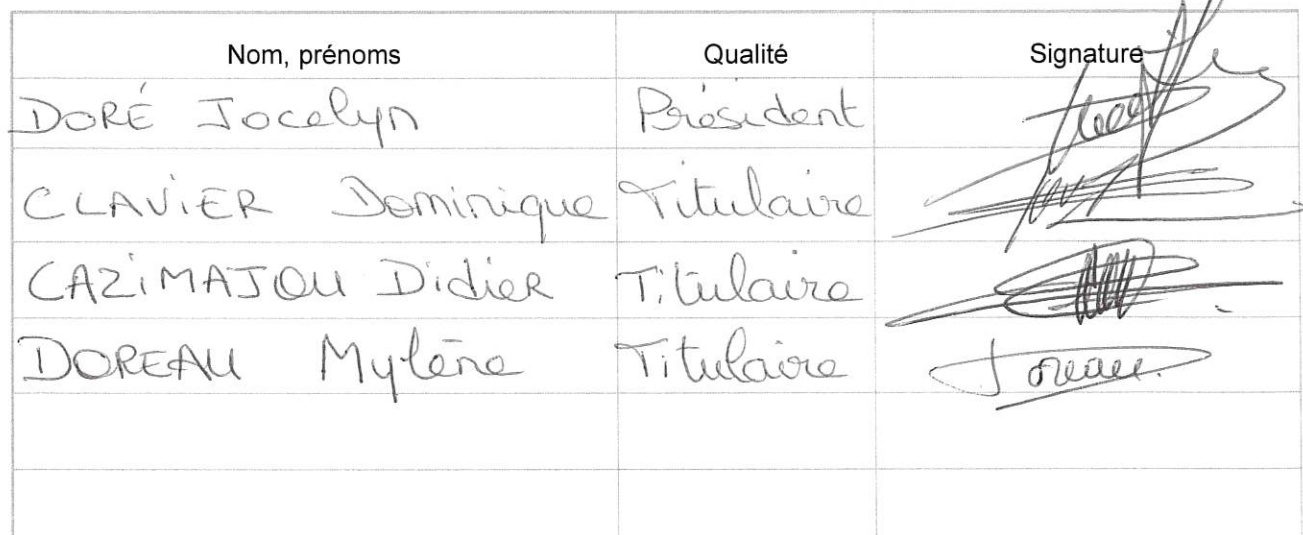 Nom, prénoms Qualité Signature
DORÉ Jocelyn Président
CLAViER Dominique Titulaire
CAZiMAJOU Didier Titulaire
DOREAU Mylène Titulaire Doreau